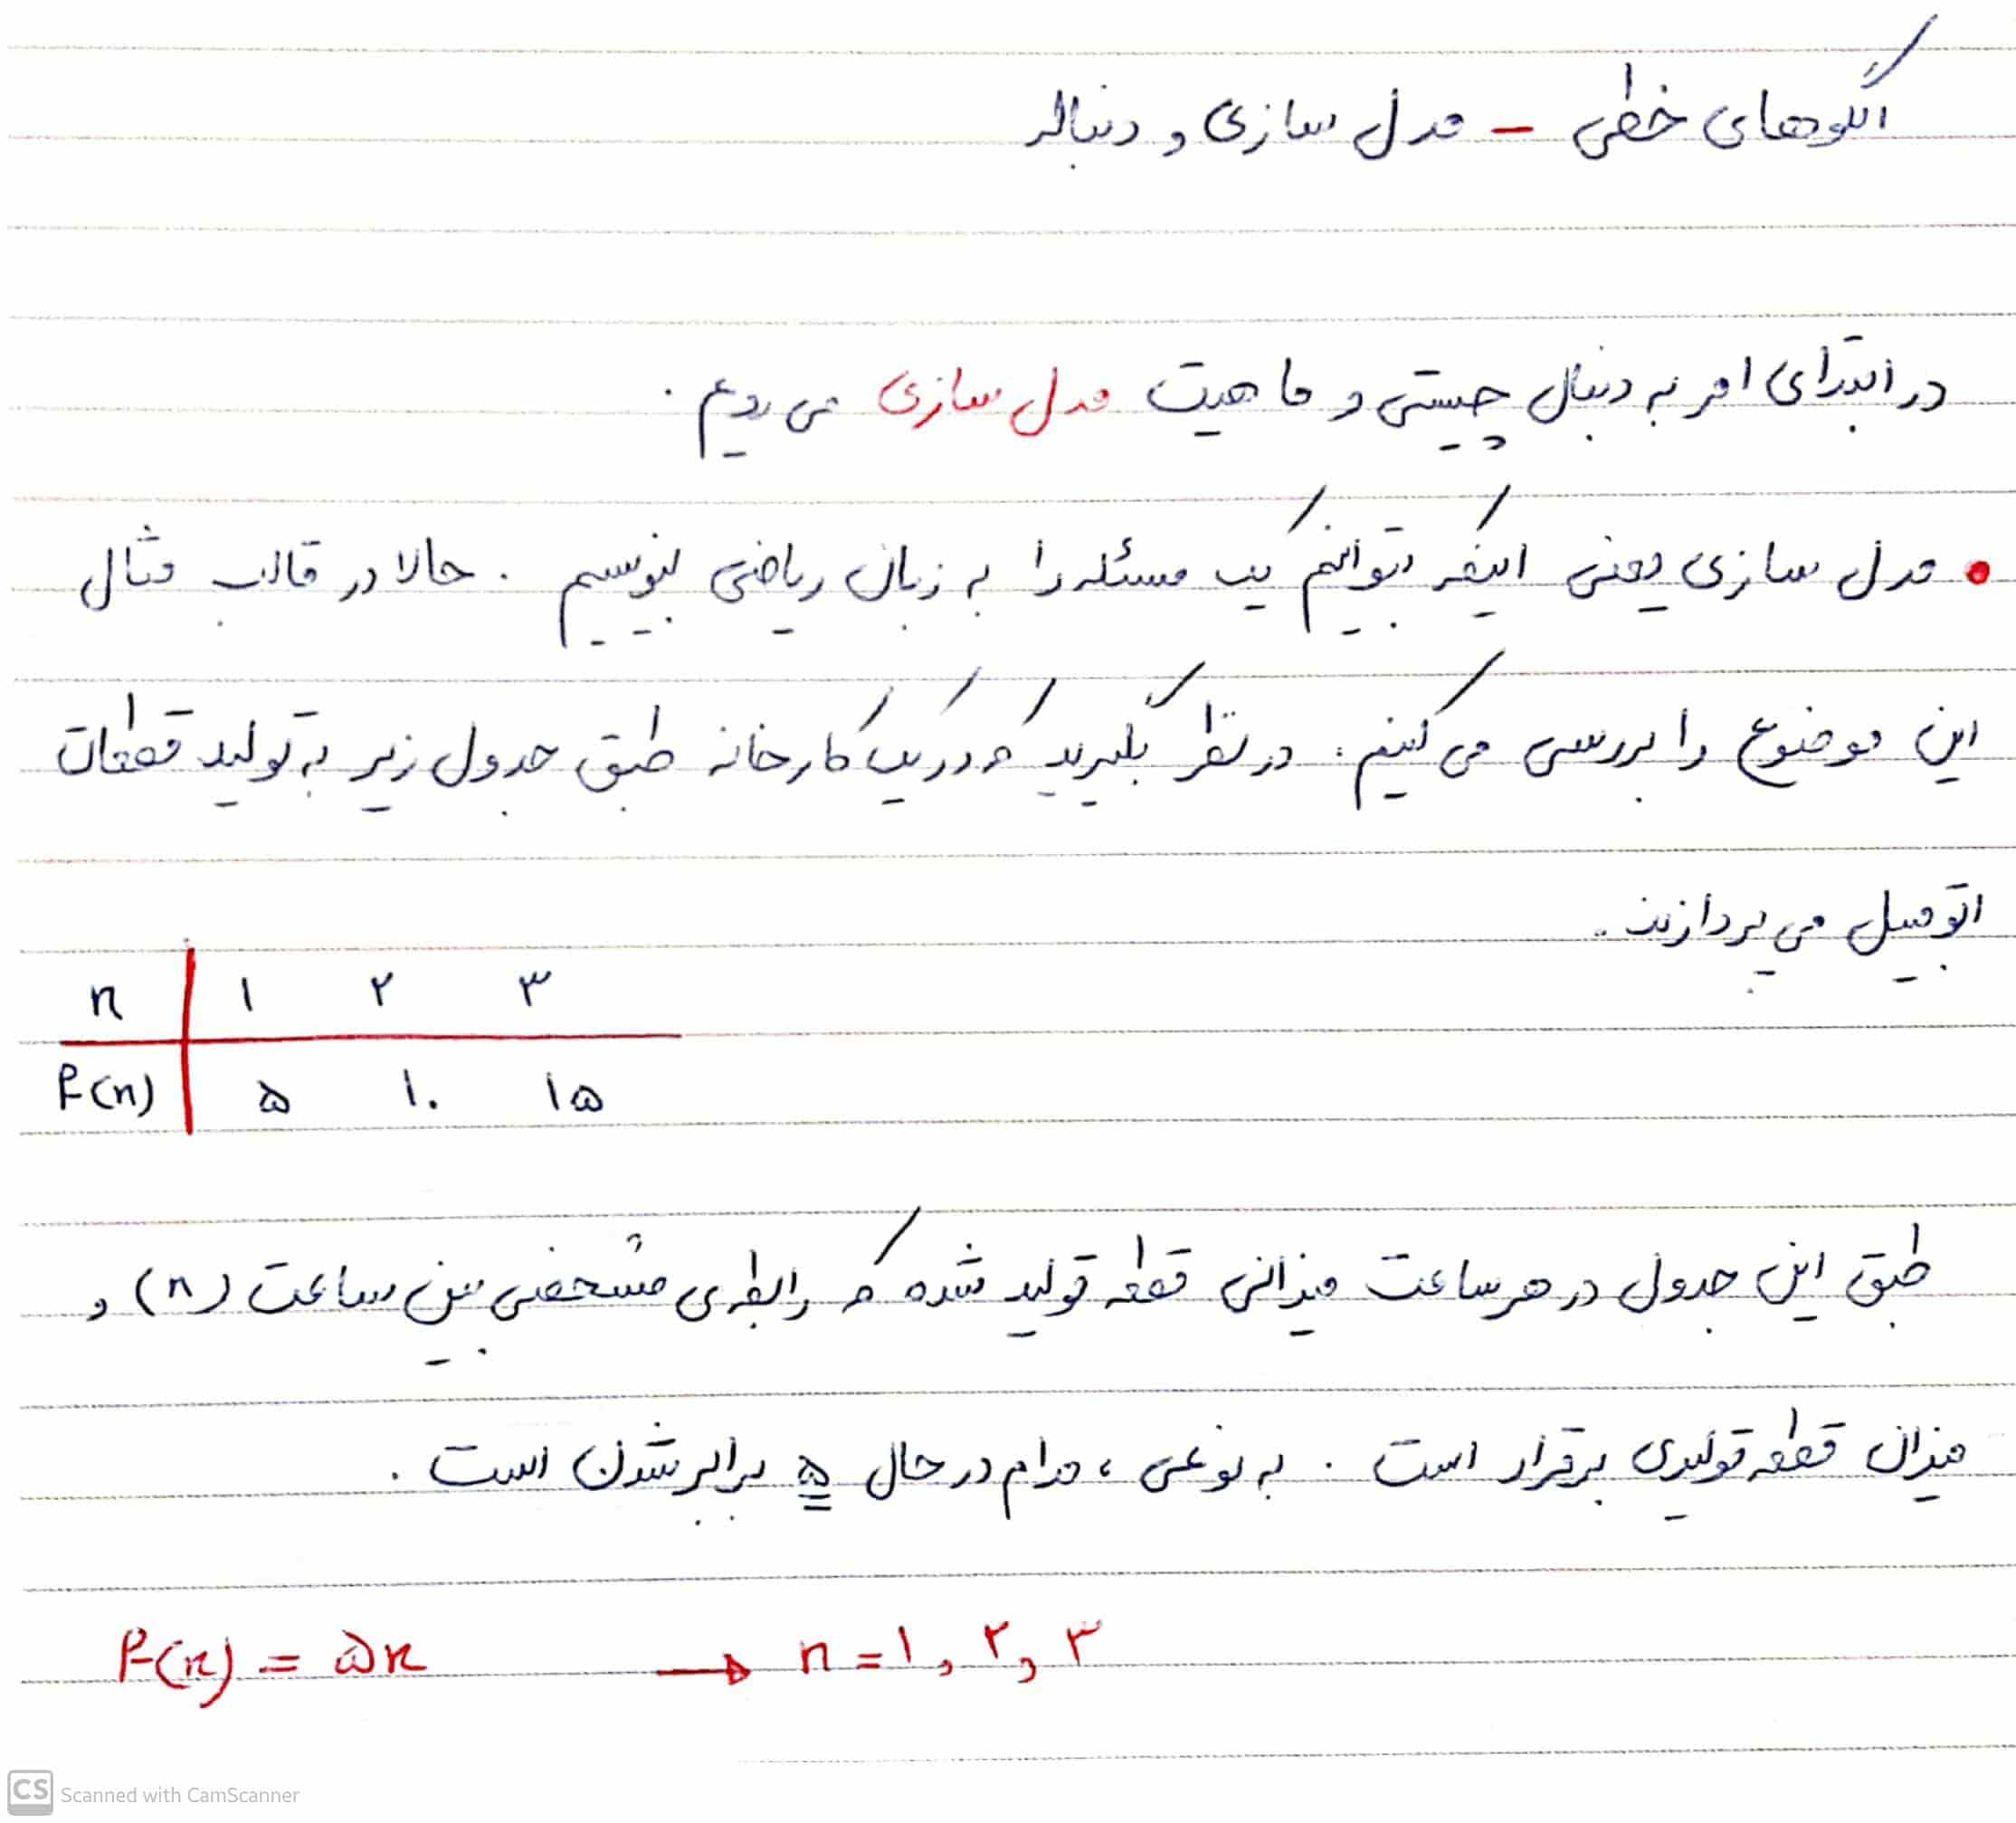 الگوهای خطی – مدل سازی و دنباله
در ابتدای امر به دنبال چیستی و ماهیت مدل سازی می رویم .
• مدل سازی یعنی اینکه بتوانیم یک مسئله را به زبان ریاضی بنویسیم . حالا در قالب مثال
این موضوع را بررسی می کنیم: در نظر بگیرید که در یک کارخانه طبق جدول زیر به تولید قطعات
اتومبیل می پردازند.
n | ۱ ۲ ۳
f(n) | ۵ ۱۰ ۱۵
طبق این جدول در هر ساعت میزانی قطعه تولید شده که رابطه ی مشخصی بین ساعت (n) و
میزان قطعه تولیدی برقرار است . به نوعی ، مدام در حال ۵ برابر شدن است .
f(n) = ۵n → n = ۱ , ۲ , ۳
CS Scanned with CamScanner